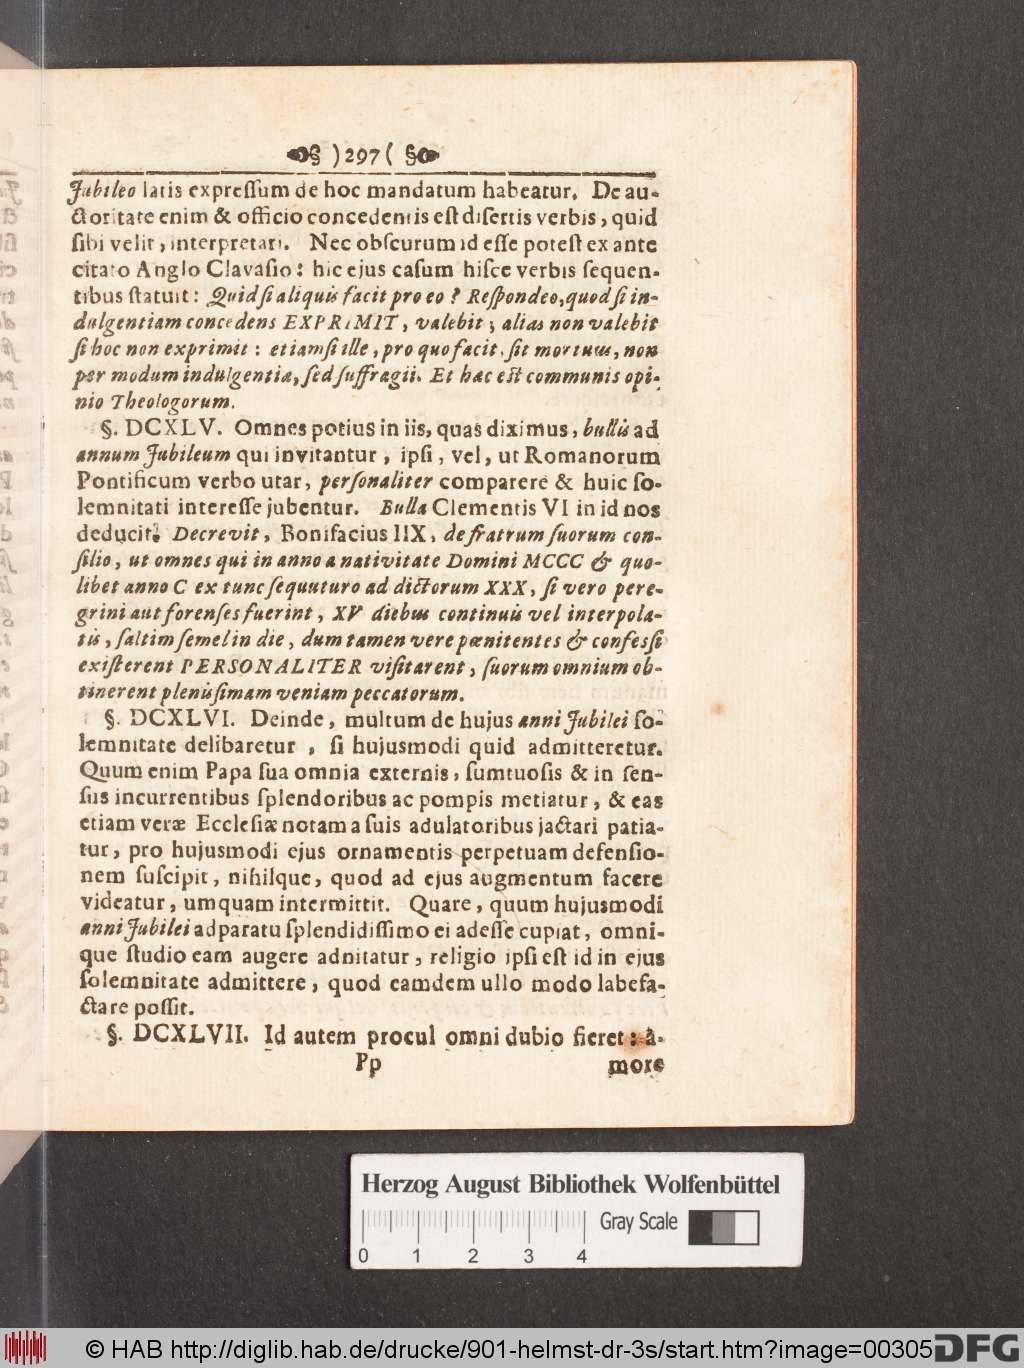 )297(
Jubileo latis expreſſum de hoc mandatum habeatur. De au-
ctoritate enim & officio concedentis eſt diſertis verbis, quid
ſibi velit, interpretari. Nec obſcurum id eſſe poteſt ex ante
citato Anglo Clavaſio: hic ejus caſum hiſce verbis ſequen-
tibus ſtatuit: Quid ſi aliquis facit pro eo? Reſpondeo, quod ſi in-
dulgentiam concedens EXPRIMIT, valebit; alias non valebit
ſi hoc non exprimit: etiamſi ille, pro quo facit, ſit mortuus, non
per modum indulgentiæ, ſed ſuffragii. Et hæc eſt communis opi-
nio Theologorum.
§. DCXLV. Omnes potius in iis, quas diximus, bullis ad
annum Jubileum qui invitantur, ipſi, vel, ut Romanorum
Pontificum verbo utar, perſonaliter comparere & huic ſo-
lemnitati intereſſe jubentur. Bulla Clementis VI in id nos
deducit: Decrevit, Bonifacius IIX, de fratrum ſuorum con-
ſilio, ut omnes qui in anno a nativitate Domini MCCC & quo-
libet anno C ex tunc ſequuturo ad dictorum XXX, ſi vero pere-
grini aut forenſes fuerint, XV diebus continuis vel interpola-
tis, ſaltim ſemel in die, dum tamen vere pœnitentes & confeſſi
exiſterent PERSONALITER viſitarent, ſuorum omnium ob-
tinerent pleniſſimam veniam peccatorum.
§. DCXLVI. Deinde, multum de hujus anni Jubilei ſo-
lemnitate delibaretur, ſi hujusmodi quid admitteretur.
Quum enim Papa ſua omnia externis, ſumtuoſis & in ſen-
ſus incurrentibus ſplendoribus ac pompis metiatur, & eas
etiam veræ Eccleſiæ notam a ſuis adulatoribus jactari patia-
tur, pro hujusmodi ejus ornamentis perpetuam defenſio-
nem ſuſcipit, nihilque, quod ad ejus augmentum facere
videatur, umquam intermittit. Quare, quum hujusmodi
anni Jubilei adparatu ſplendidiſſimo ei adeſſe cupiat, omni-
que ſtudio eam augere adnitatur, religio ipſi eſt id in ejus
ſolemnitate admittere, quod eamdem ullo modo labefa-
ctare poſſit.
§. DCXLVII. Id autem procul omni dubio fieret: a-
Pp more
Herzog August Bibliothek Wolfenbüttel
Gray Scale
0 1 2 3 4
© HAB http://diglib.hab.de/drucke/901-helmst-dr-3s/start.htm?image=00305 DFG